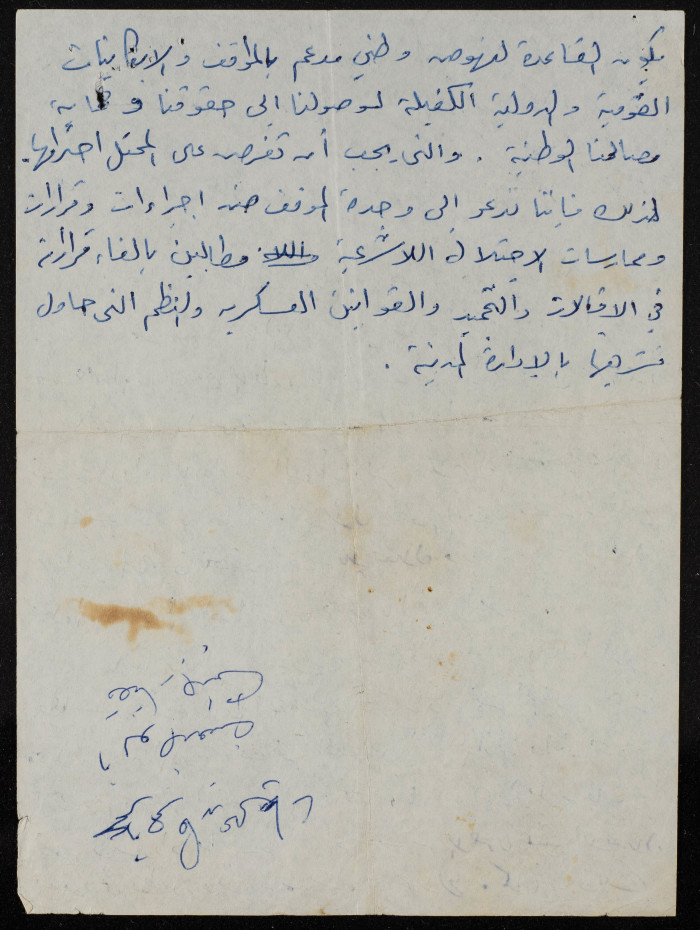 يكون القاعدة لنهوض وطني مدعم بالمواقف والامكانيات
القومية والدولية الكفيلة لوصولنا الى حقوقنا وحماية
مصالحنا الوطنية . والتي يجب أن تفرض على المحتل احترامها.
لذلك فإننا ندعو الى وحدة الموقف ضد اجراءات وقرارات
وممارسات الاحتلال اللاشرعية مطالبين بالغاء قراراته
في الاقالات والتجميد والقوانين العسكريه والنظم التي حاول
بالإدارة المدنية .